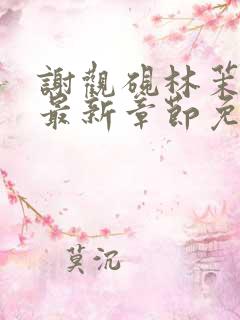 謝觀硯林茱
最新章節免
莫沉